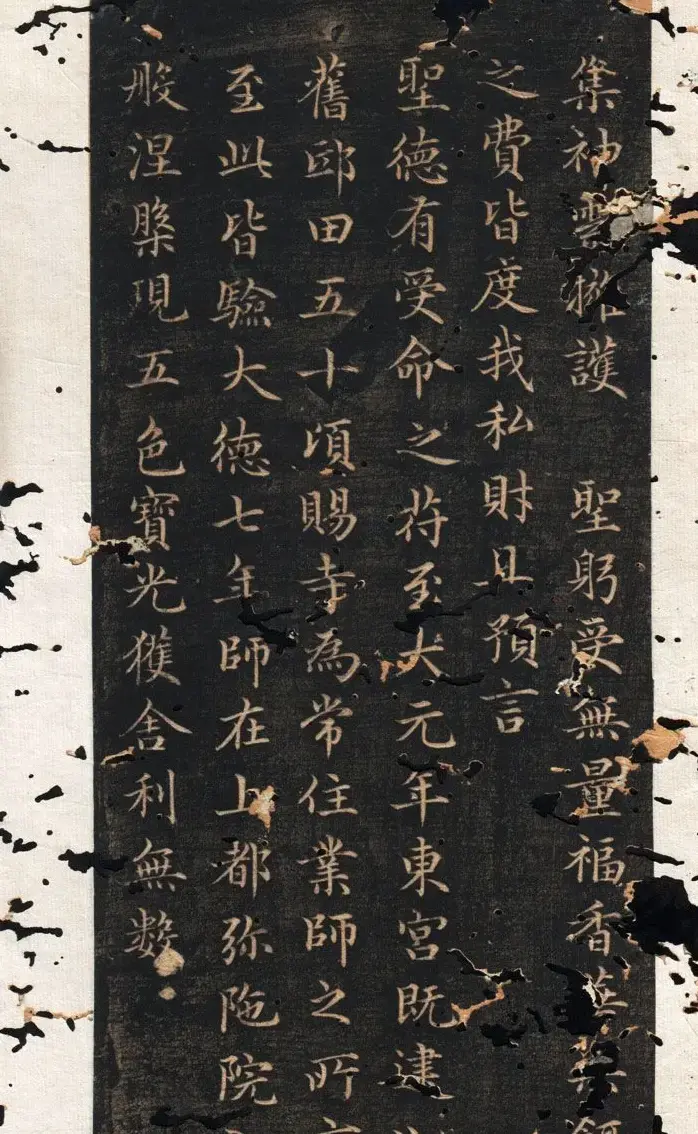 集神雲擁護　聖躬受無量福香
之費皆度我私財且預言
聖德有受命之苻至大元年東宮既建
舊邸田五十頃賜寺為常住業師之所
至此皆驗大德七年師在上都弥陁院
般涅槃現五色寶光獲舍利無數